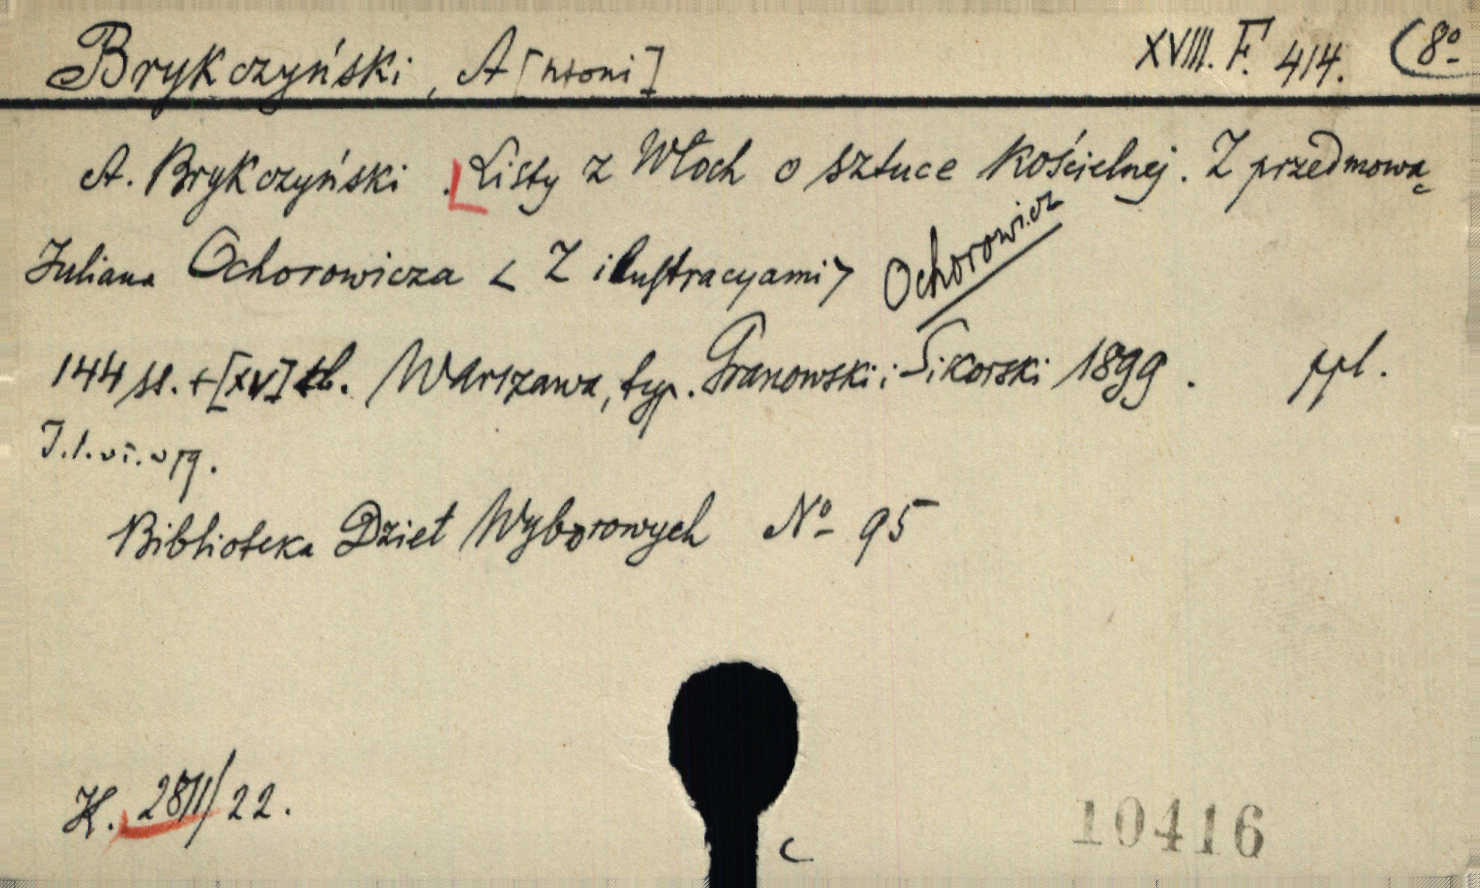 Brykczyński, A[ntoni] XVIII. F. 414. (8º
A. Brykczyński. Listy z Włoch o sztuce kościelnej. Z przedmową
Juliana Ochorowicza < Z ilustracyami > Ochorowicz
144 ss. + [XV] tb. Warszawa, typ. Granowski i Sikorski 1899. ppł.
Biblioteka Dzieł Wyborowych Nº 95
K. 28/II/22.
10416